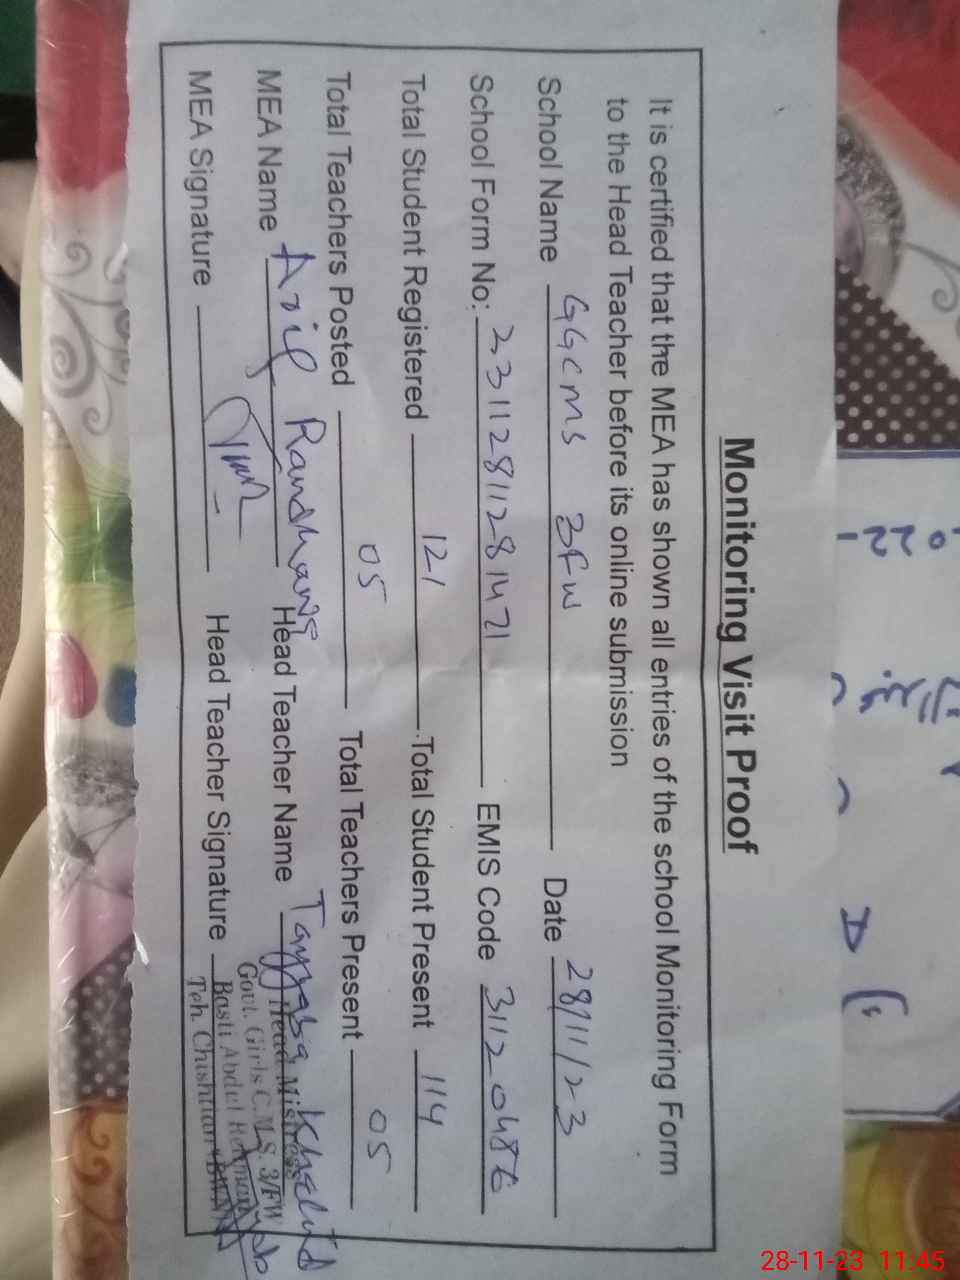 Monitoring Visit Proof
It is certified that the MEA has shown all entries of the school Monitoring Form
to the Head Teacher before its online submission
School Name GGCMS 3FW Date 28/11/23
School Form No: 23112811281421 EMIS Code 31120486
Total Student Registered 121 Total Student Present 114
Total Teachers Posted 05 Total Teachers Present 05
MEA Name Randhawa Head Teacher Name Tayyaba Khalid
MEA Signature Head Teacher Signature
Head Mistress
Govt. Girls C.M.S. 3/FW
Basti Abdul Rehman
Teh. Chishtian
28-11-23 11:45